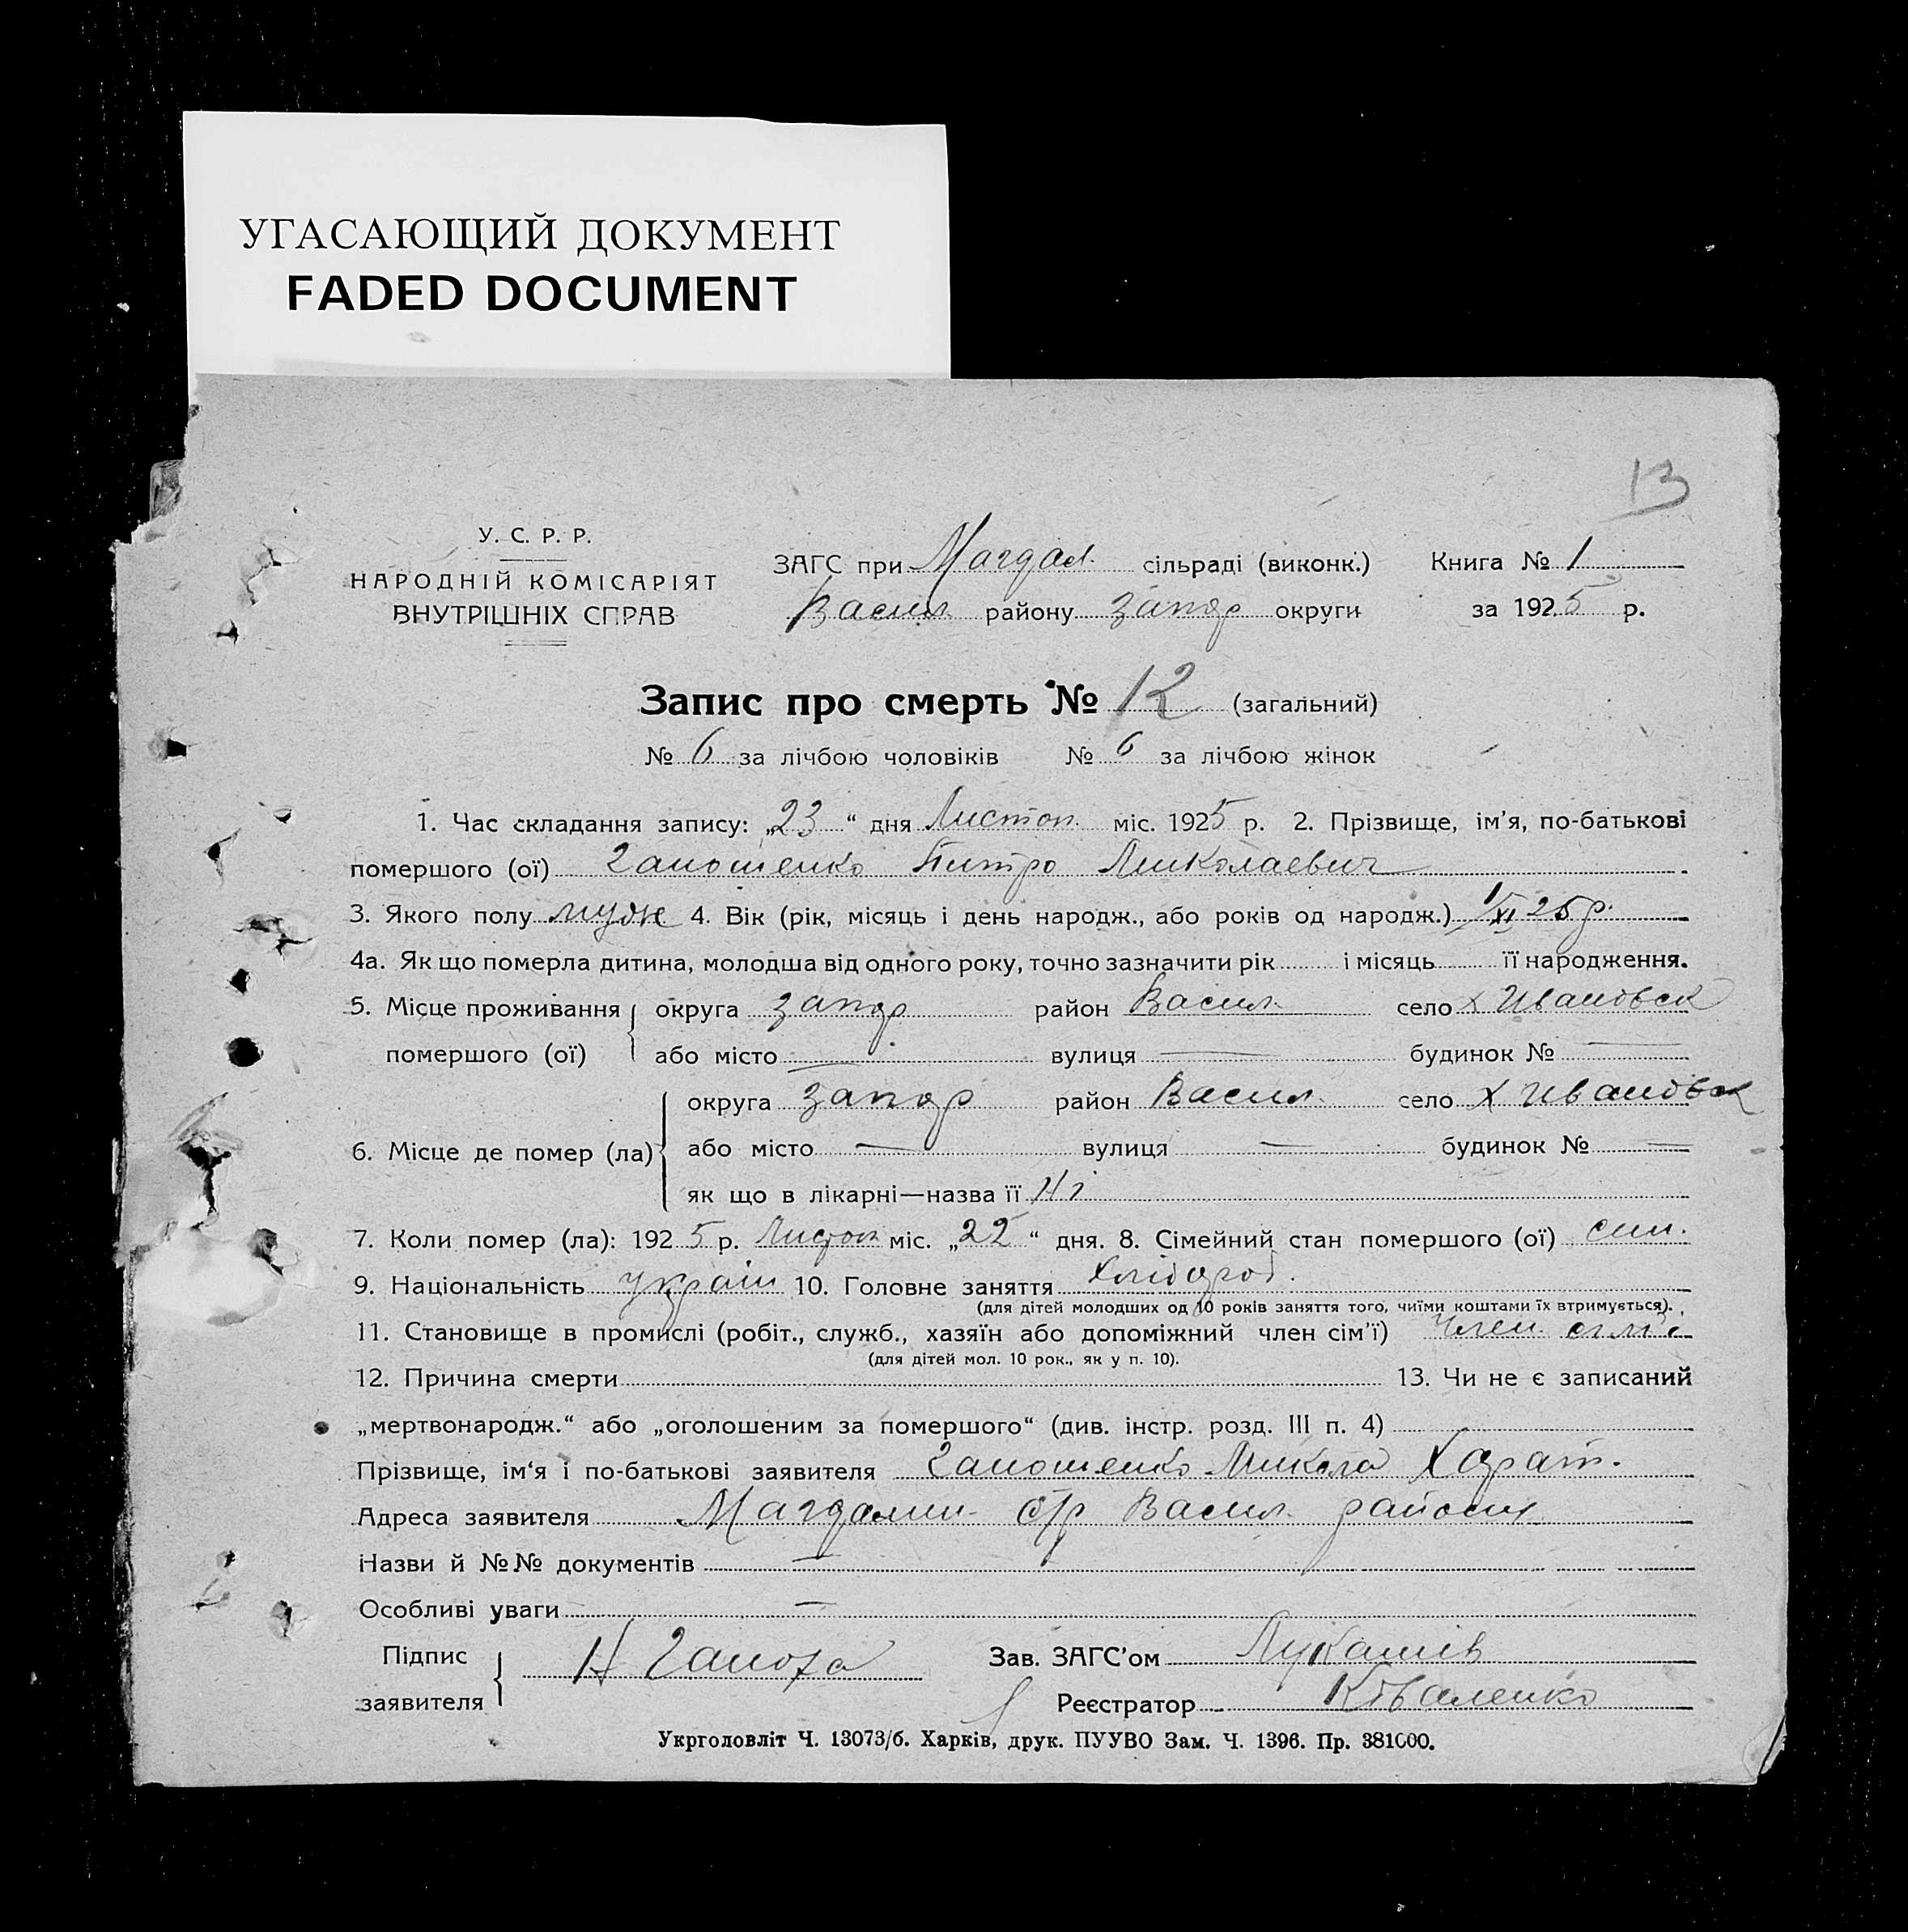 УГАСАЮЩИЙ ДОКУМЕНТ
FADED DOCUMENT
13
У. С. Р. Р.
НАРОДНІЙ КОМІСАРІЯТ
ВНУТРІШНІХ СПРАВ
ЗАГС при Магдал. сільраді (виконк.) Книга № 1
Васил. району Запор округи за 1925 р.
Запис про смерть № 12 (загальний)
№ 6 за лічбою чоловіків № 6 за лічбою жінок
1. Час складання запису: „23“ дня Листоп. міс. 1925 р. 2. Прізвище, ім'я, по-батькові
помершого (ої) Ганошенко Питро Миколаевич
3. Якого полу муж 4. Вік (рік, місяць і день народж., або років од народж.) 1/XI 25 р.
4а. Як що померла дитина, молодша від одного року, точно зазначити рік і місяць її народження.
5. Місце проживання округа Запор район Васил. село х Ивановск
помершого (ої) або місто — вулиця — будинок № —
округа Запор район Васил. село х Ивановск
6. Місце де помер (ла) або місто — вулиця — будинок № —
як що в лікарні—назва її Ні
7. Коли помер (ла): 1925 р. Листоп міс. „22“ дня. 8. Сімейний стан помершого (ої) син.
9. Національність україн 10. Головне заняття Хлібороб.
(для дітей молодших од 10 років заняття того, чиїми коштами їх втримується).
11. Становище в промислі (робіт., служб., хазяїн або допоміжний член сім'ї) Член сім'ї
(для дітей мол. 10 рок., як у п. 10).
12. Причина смерти 13. Чи не є записаний
„мертвонародж.“ або „оголошеним за помершого“ (див. інстр. розд. III п. 4)
Прізвище, ім'я і по-батькові заявителя Ганошенко Микола Харат.
Адреса заявителя Магдалин. с/р Васил. району
Назви й №№ документів —
Особливі уваги —
Підпис заявителя Н Ганоха Зав. ЗАГС'ом Лукашів
Реєстратор Коваленко
Укрголовліт Ч. 13073/б. Харків, друк. ПУУВО Зам. Ч. 1396. Пр. 381000.